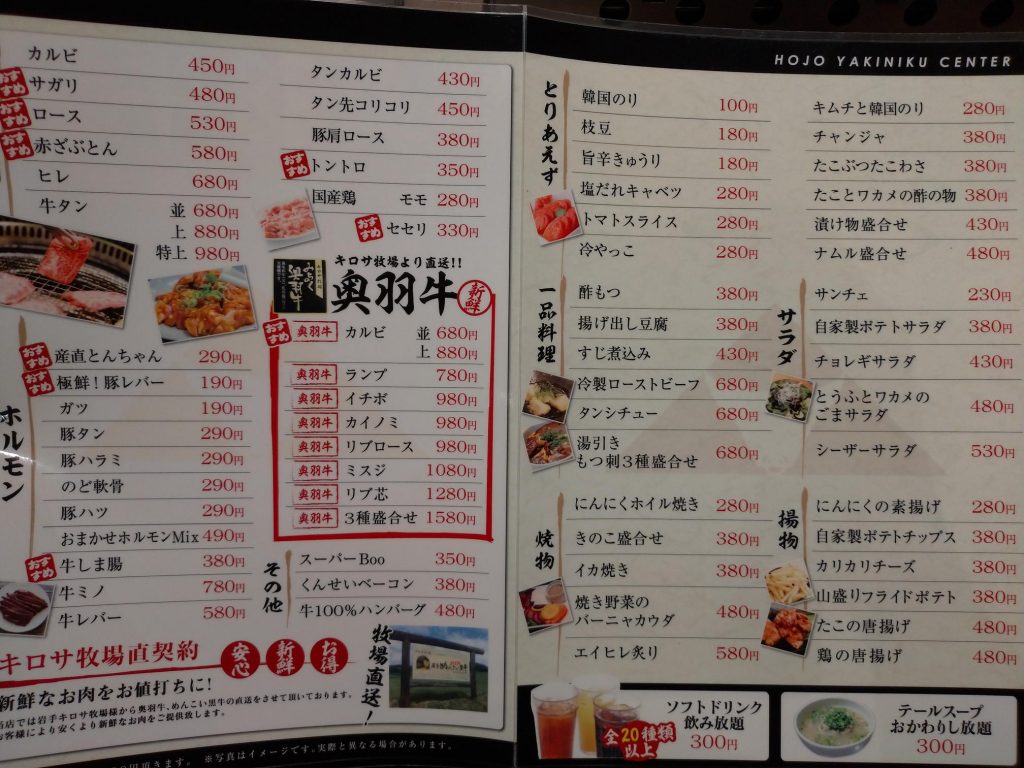 カルビ 450円
おすすめ サガリ 480円
おすすめ ロース 530円
おすすめ 赤ざぶとん 580円
ヒレ 680円
牛タン 並 680円
上 880円
特上 980円
タンカルビ 430円
タン先コリコリ 450円
豚肩ロース 380円
おすすめ トントロ 350円
国産鶏 モモ 280円
おすすめ セセリ 330円
キロサ牧場より直送!!
奥羽牛 新鮮
おすすめ 奥羽牛 カルビ 並 680円
上 880円
奥羽牛 ランプ 780円
奥羽牛 イチボ 980円
奥羽牛 カイノミ 980円
奥羽牛 リブロース 980円
奥羽牛 ミスジ 1080円
奥羽牛 リブ芯 1280円
奥羽牛 3種盛合せ 1580円
ホルモン
おすすめ 産直とんちゃん 290円
おすすめ 極鮮!豚レバー 190円
ガツ 190円
豚タン 290円
豚ハラミ 290円
のど軟骨 290円
豚ハツ 290円
おまかせホルモンMix 490円
おすすめ 牛しま腸 380円
牛ミノ 780円
牛レバー 580円
その他
スーパーBoo 350円
くんせいベーコン 380円
牛100%ハンバーグ 480円
キロサ牧場直契約 安心 新鮮 お得
新鮮なお肉をお値打ちに!
当店では岩手キロサ牧場様から奥羽牛、めんこい黒牛の直送をさせて頂いております。
お客様により安くより新鮮なお肉をご提供致します。
牧場直送!
円頂きます。 ※写真はイメージです。実際と異なる場合があります。
HOJO YAKINIKU CENTER
とりあえず
韓国のり 100円
枝豆 180円
旨辛きゅうり 180円
塩だれキャベツ 280円
トマトスライス 280円
冷やっこ 280円
キムチと韓国のり 280円
チャンジャ 380円
たこぶつたこわさ 380円
たことワカメの酢の物 380円
漬け物盛合せ 430円
ナムル盛合せ 480円
一品料理
酢もつ 380円
揚げ出し豆腐 380円
すじ煮込み 430円
冷製ローストビーフ 680円
タンシチュー 680円
湯引き
もつ刺3種盛合せ 680円
サラダ
サンチェ 230円
自家製ポテトサラダ 380円
チョレギサラダ 430円
とうふとワカメの
ごまサラダ 480円
シーザーサラダ 530円
焼物
にんにくホイル焼き 280円
きのこ盛合せ 380円
イカ焼き 380円
焼き野菜の
バーニャカウダ 480円
エイヒレ炙り 580円
揚物
にんにくの素揚げ 280円
自家製ポテトチップス 380円
カリカリチーズ 380円
山盛りフライドポテト 380円
たこの唐揚げ 480円
鶏の唐揚げ 480円
ソフトドリンク
飲み放題
300円
全20種類
以上
テールスープ
おかわりし放題
300円